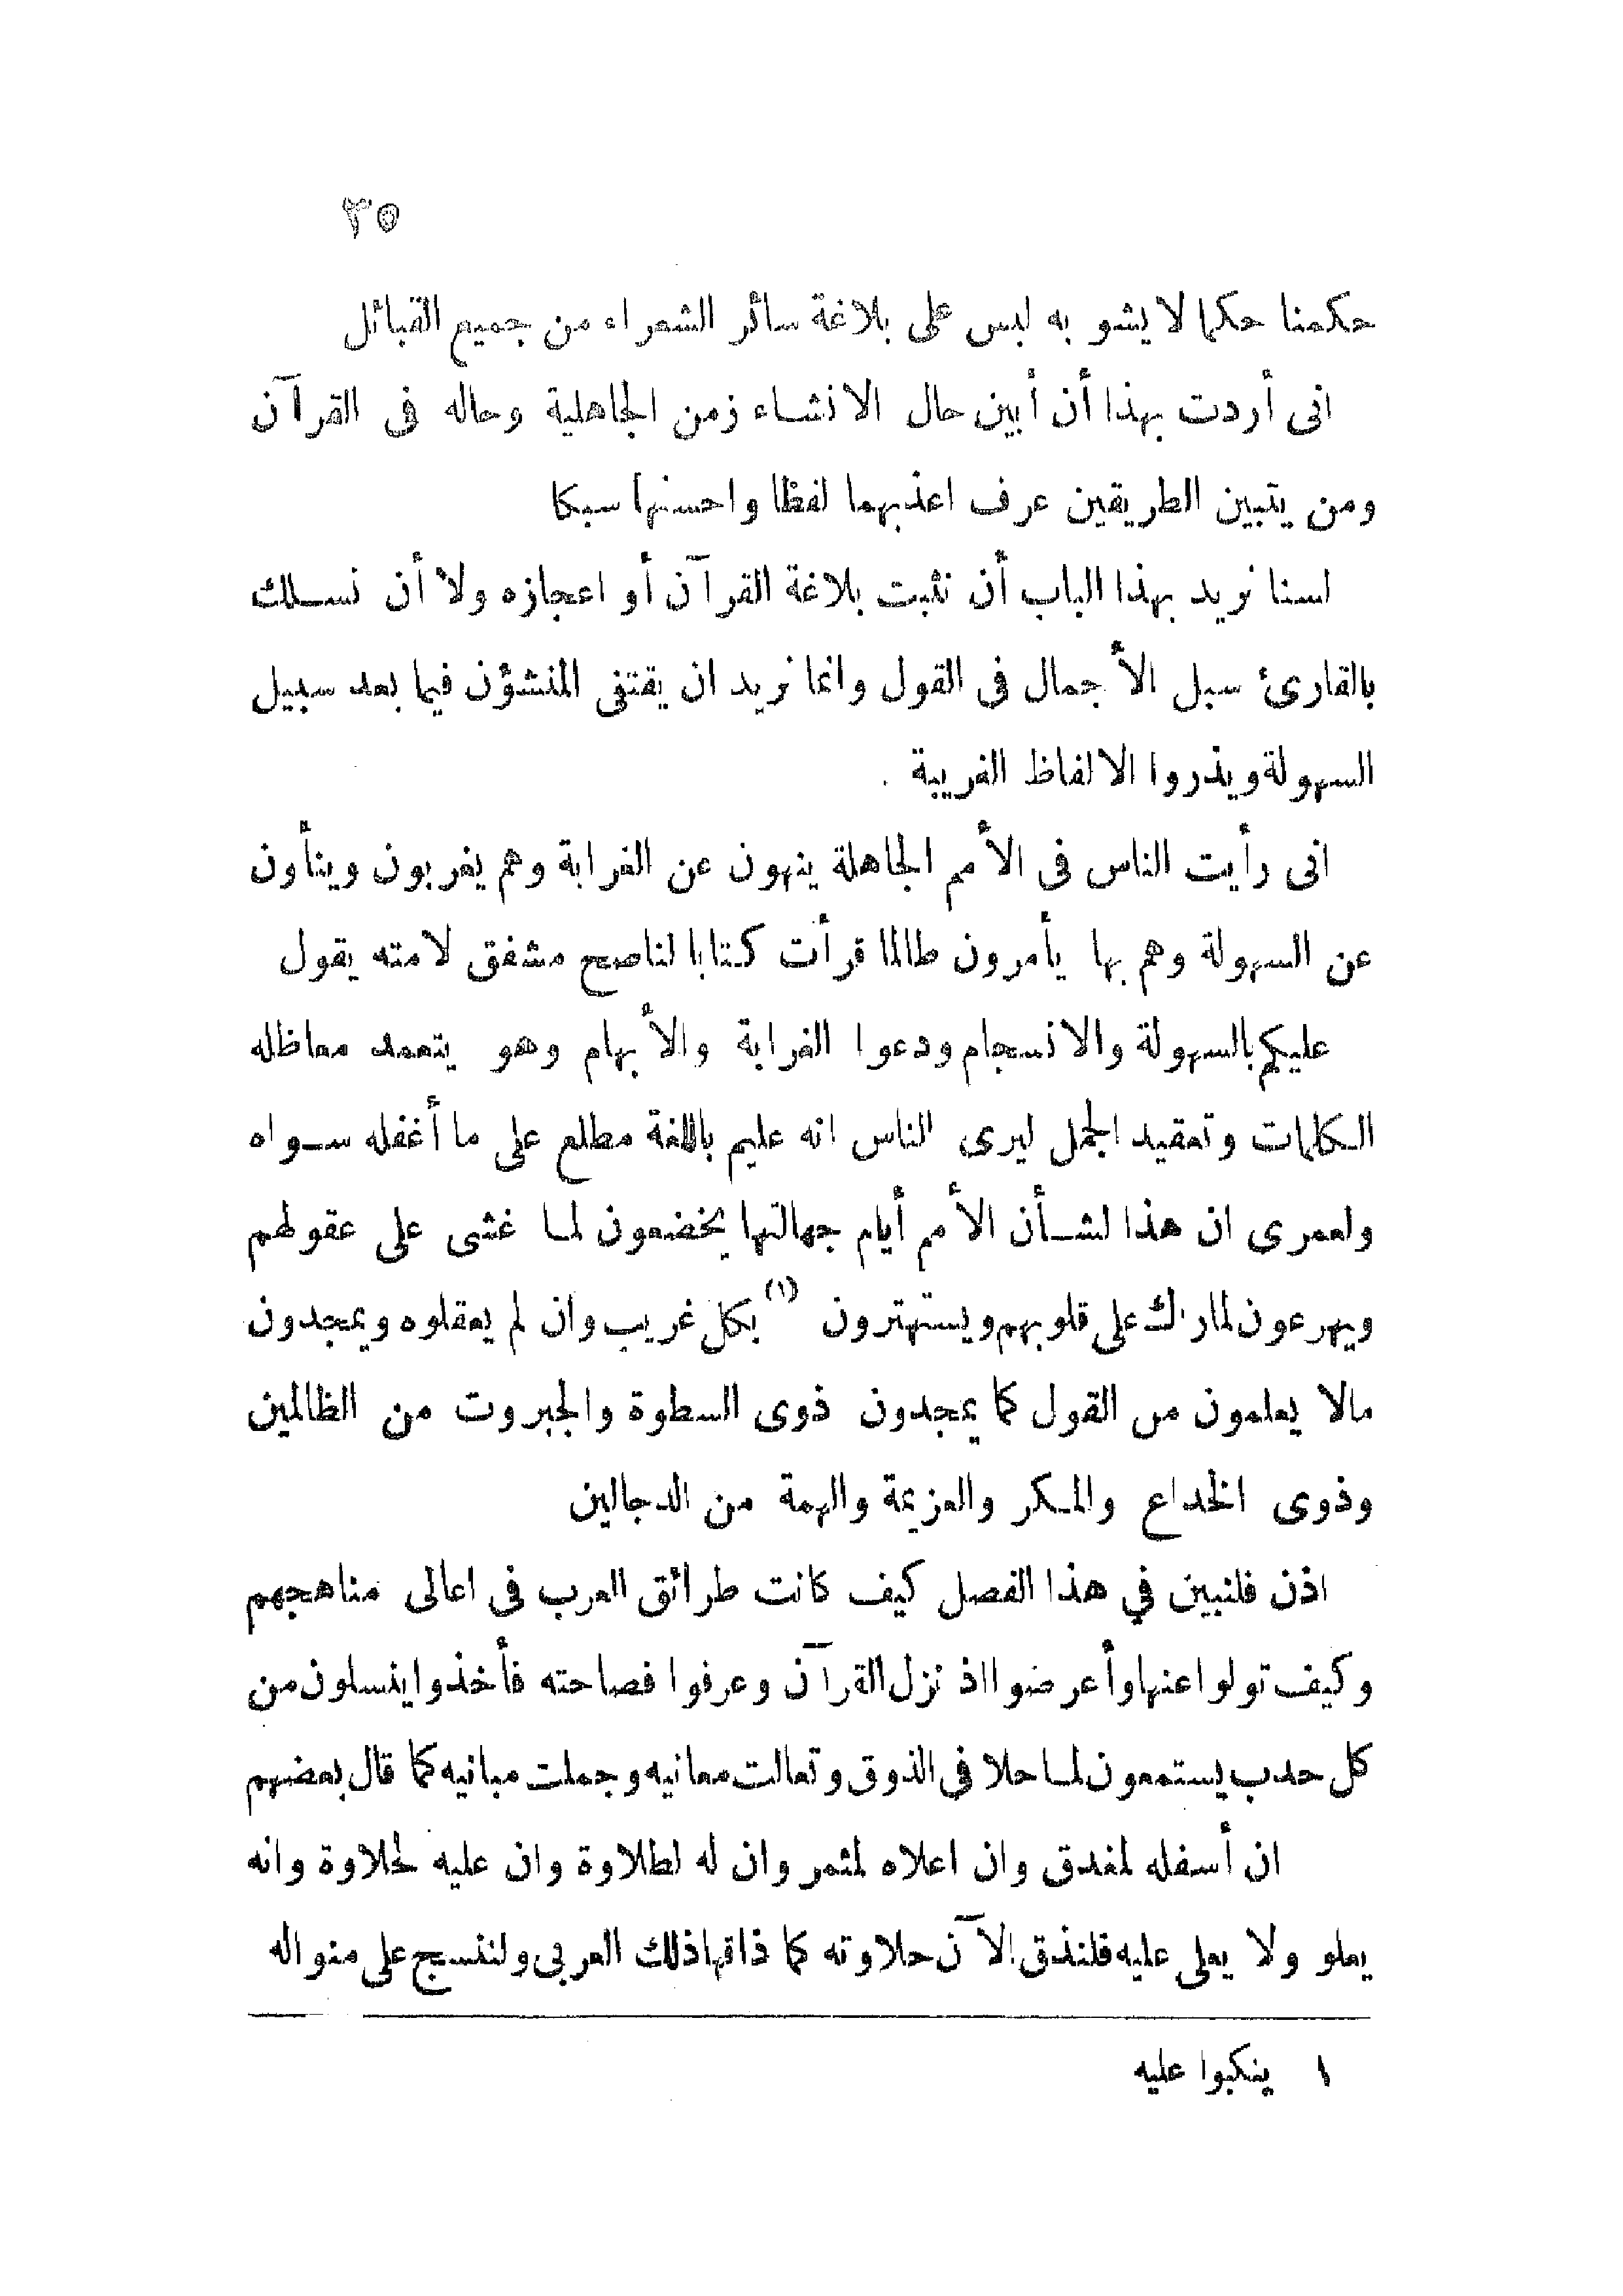 ٣٥
حكمنا حكما لا يشو به لبس على بلاغة سائر الشعراء من جميع القبائل
انى أردت بهذا أن أبين حال الانشاء زمن الجاهلية وحاله فى القرآن
ومن يتبين الطريقين عرف اعذبهما لفظا واحسنها سبكا
لسنا نريد بهذا الباب أن نثبت بلاغة القرآن أو اعجازه ولا أن نسلك
بالقارئ سبل الأجمال فى القول وانما نريد ان يقتفى المنشؤن فيما بعد سبيل
السهولة ويذروا الالفاظ الغريبة .
انى رأيت الناس فى الأمم الجاهلة ينهون عن الغرابة وهم يغربون وينأون
عن السهولة وهم بها يأمرون طالما قرأت كتابا لناصح مشفق لامته يقول
عليكم بالسهولة والانسجام ودعوا الغرابة والأبهام وهو يتعمد معاظله
الكلمات وتعقيد الجمل ليرى الناس انه عليم باللغة مطلع على ما أغفله سواه
ولعمرى ان هذا لشأن الأمم أيام جهالتها يخضعون لما غشى على عقولهم
ويهرعون لما ران على قلوبهم ويستهترون (١) بكل غريب وان لم يعقلوه ويمجدون
مالا يعلمون من القول كما يمجدون ذوى السطوة والجبروت من الظالمين
وذوى الخداع والمكر والعزيمة والهمة من الدجالين
اذن فلنبين في هذا الفصل كيف كانت طرائق العرب فى اعالى مناهجهم
وكيف تولوا عنها وأعرضوا اذ نزل القرآن وعرفوا فصاحته فأخذوا ينسلون من
كل حدب يستمعون لما حلا فى الذوق وتعالت معانيه وجملت مبانيه كما قال بعضهم
ان أسفله لمغدق وان اعلاه لمثمر وان له لطلاوة وان عليه لحلاوة وانه
يعلو ولا يعلى عليه فلنذق الآن حلاوته كما ذاقها ذلك العربى ولننسج على منواله
١ ينكبوا عليه